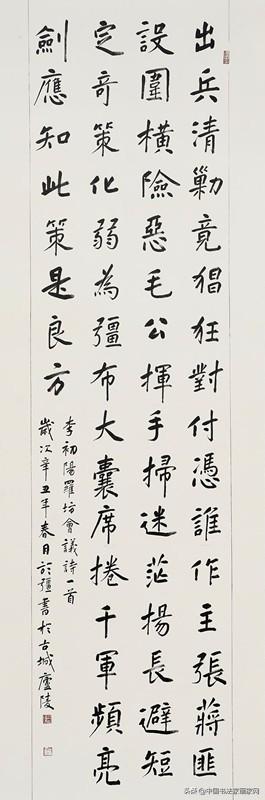 出兵清勦竟猖狂對付憑誰作主張蔣匪
設圍橫險惡毛公揮手掃迷茫揚長避短
定奇策化弱為疆布大囊席捲千軍頻亮
劍應知此策是良方
李初陽羅坊會議詩一首
歲次辛丑年春日於疆書於古城廬陵
头条 @中国书法家画家网